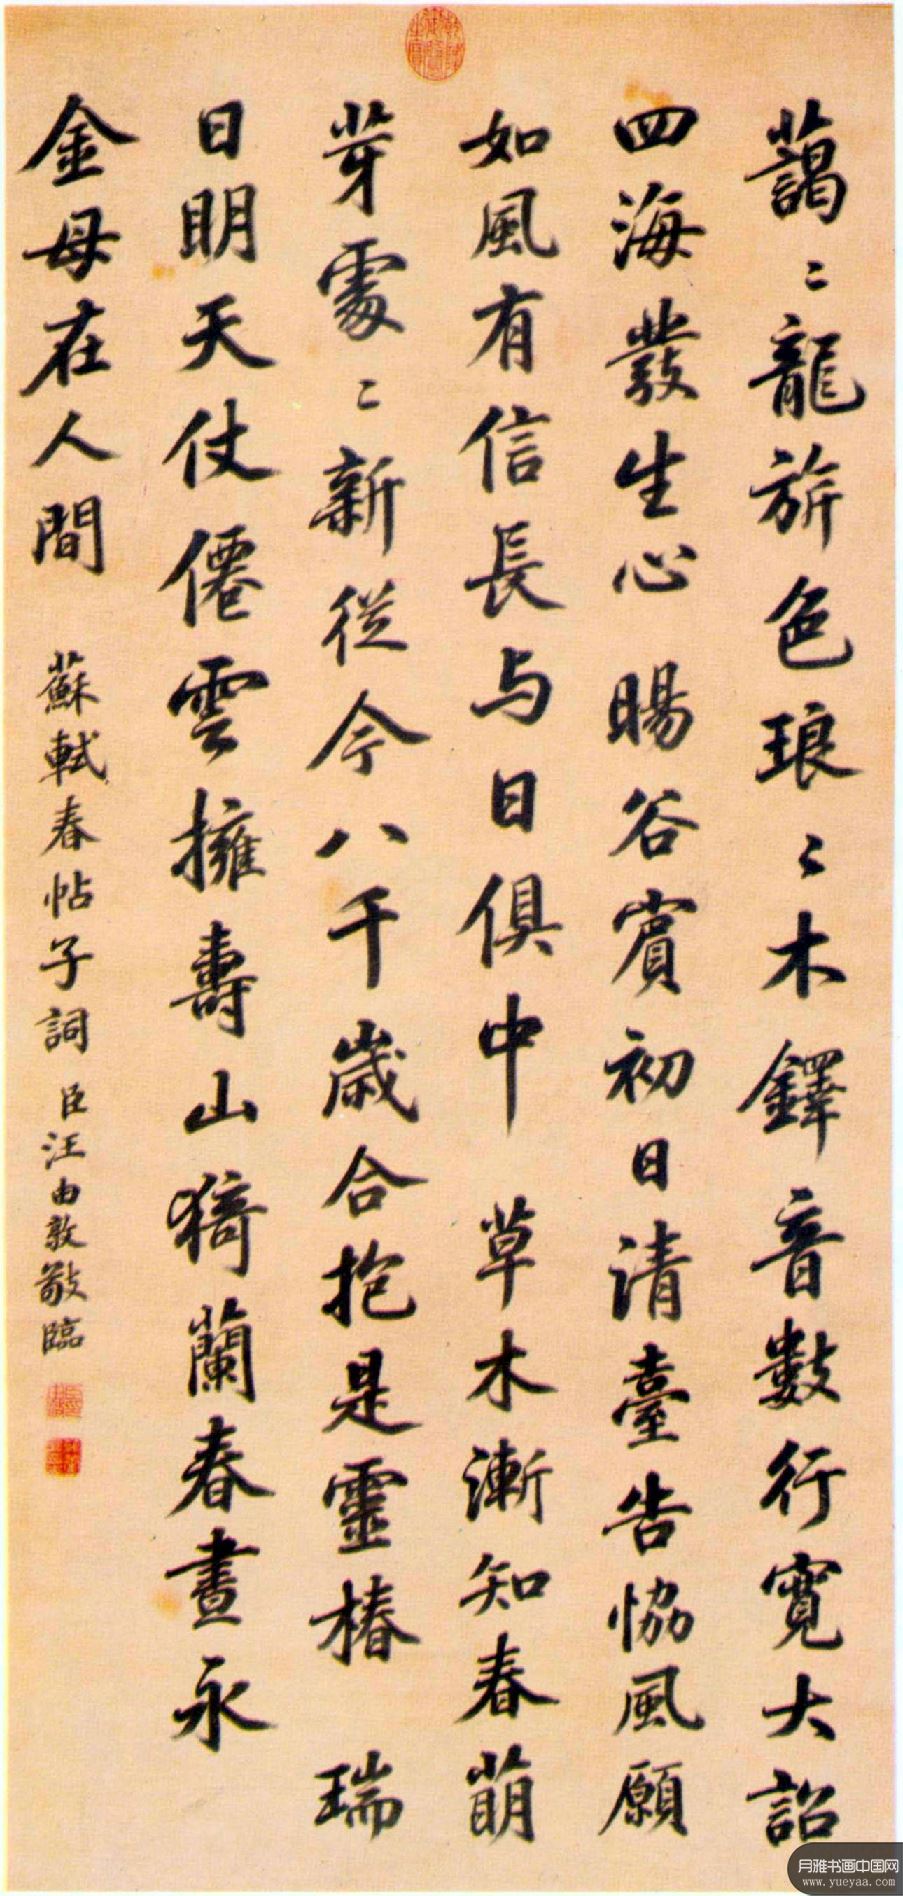 藹〻龍旂色琅〻木鐸音數行寬大詔
四海發生心 暘谷賓初日清臺告協風願
如風有信長与日俱中 草木漸知春萌
芽處〻新從今八千歲合抱是靈椿 瑞
日明天仗僊雲擁壽山猗蘭春晝永
金母在人間
蘇軾春帖子詞 臣汪由敦敬臨
月雅书画中国网
www.yueyaa.com